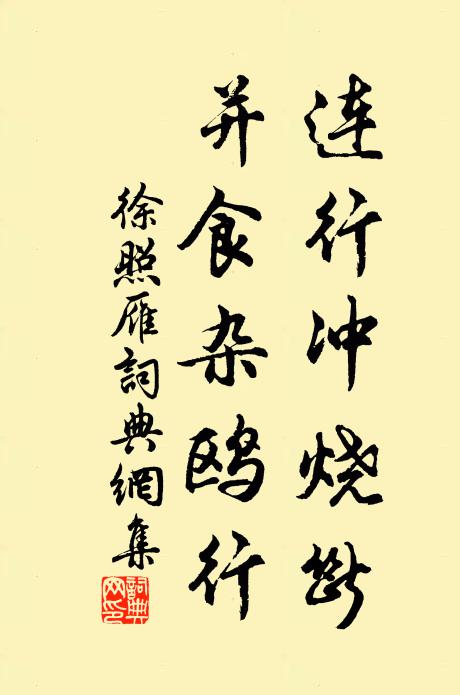 连行冲烧断
并食杂鸥行
徐照雁詞典網集
詞典网印